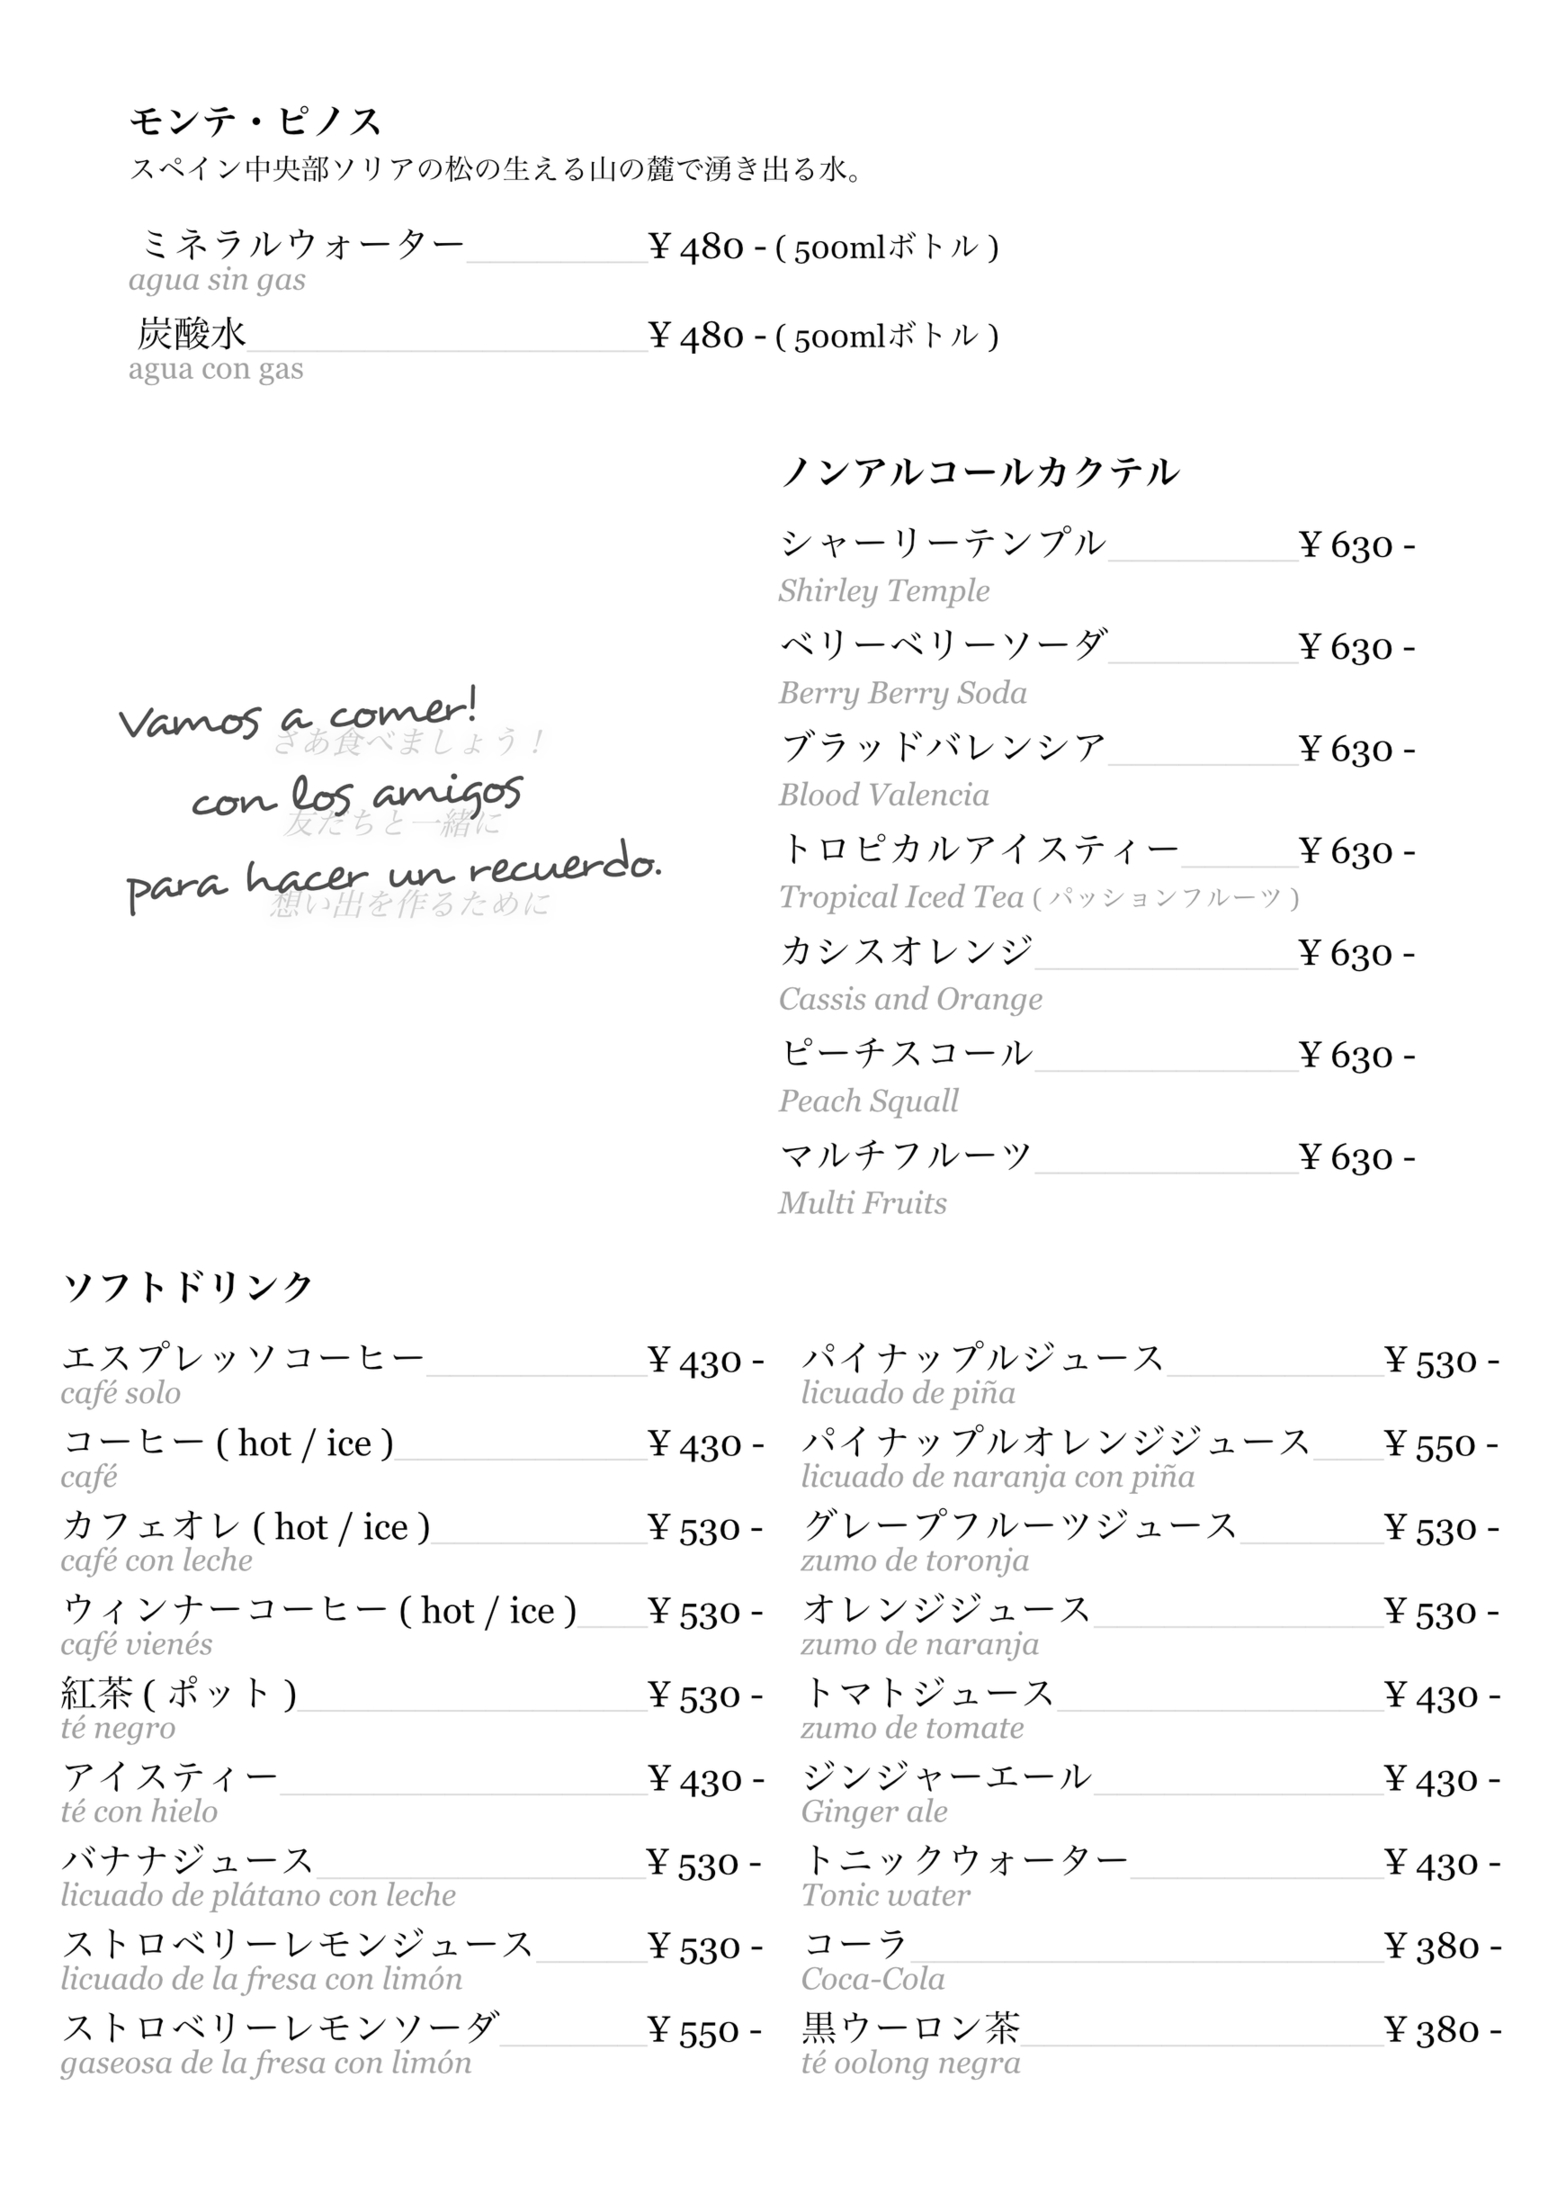 モンテ・ピノス
スペイン中央部ソリアの松の生える山の麓で湧き出る水。
ミネラルウォーター ¥ 480 - ( 500mlボトル )
agua sin gas
炭酸水 ¥ 480 - ( 500mlボトル )
agua con gas
Vamos a comer!
さあ食べましょう！
con los amigos
友だちと一緒に
para hacer un recuerdo.
想い出を作るために
ノンアルコールカクテル
シャーリーテンプル ¥ 630 -
Shirley Temple
ベリーベリーソーダ ¥ 630 -
Berry Berry Soda
ブラッドバレンシア ¥ 630 -
Blood Valencia
トロピカルアイスティー ¥ 630 -
Tropical Iced Tea ( パッションフルーツ )
カシスオレンジ ¥ 630 -
Cassis and Orange
ピーチスコール ¥ 630 -
Peach Squall
マルチフルーツ ¥ 630 -
Multi Fruits
ソフトドリンク
エスプレッソコーヒー ¥ 430 -
café solo
コーヒー ( hot / ice ) ¥ 430 -
café
カフェオレ ( hot / ice ) ¥ 530 -
café con leche
ウィンナーコーヒー ( hot / ice ) ¥ 530 -
café vienés
紅茶 ( ポット ) ¥ 530 -
té negro
アイスティー ¥ 430 -
té con hielo
バナナジュース ¥ 530 -
licuado de plátano con leche
ストロベリーレモンジュース ¥ 530 -
licuado de la fresa con limón
ストロベリーレモンソーダ ¥ 550 -
gaseosa de la fresa con limón
パイナップルジュース ¥ 530 -
licuado de piña
パイナップルオレンジジュース ¥ 550 -
licuado de naranja con piña
グレープフルーツジュース ¥ 530 -
zumo de toronja
オレンジジュース ¥ 530 -
zumo de naranja
トマトジュース ¥ 430 -
zumo de tomate
ジンジャーエール ¥ 430 -
Ginger ale
トニックウォーター ¥ 430 -
Tonic water
コーラ ¥ 380 -
Coca-Cola
黒ウーロン茶 ¥ 380 -
té oolong negra